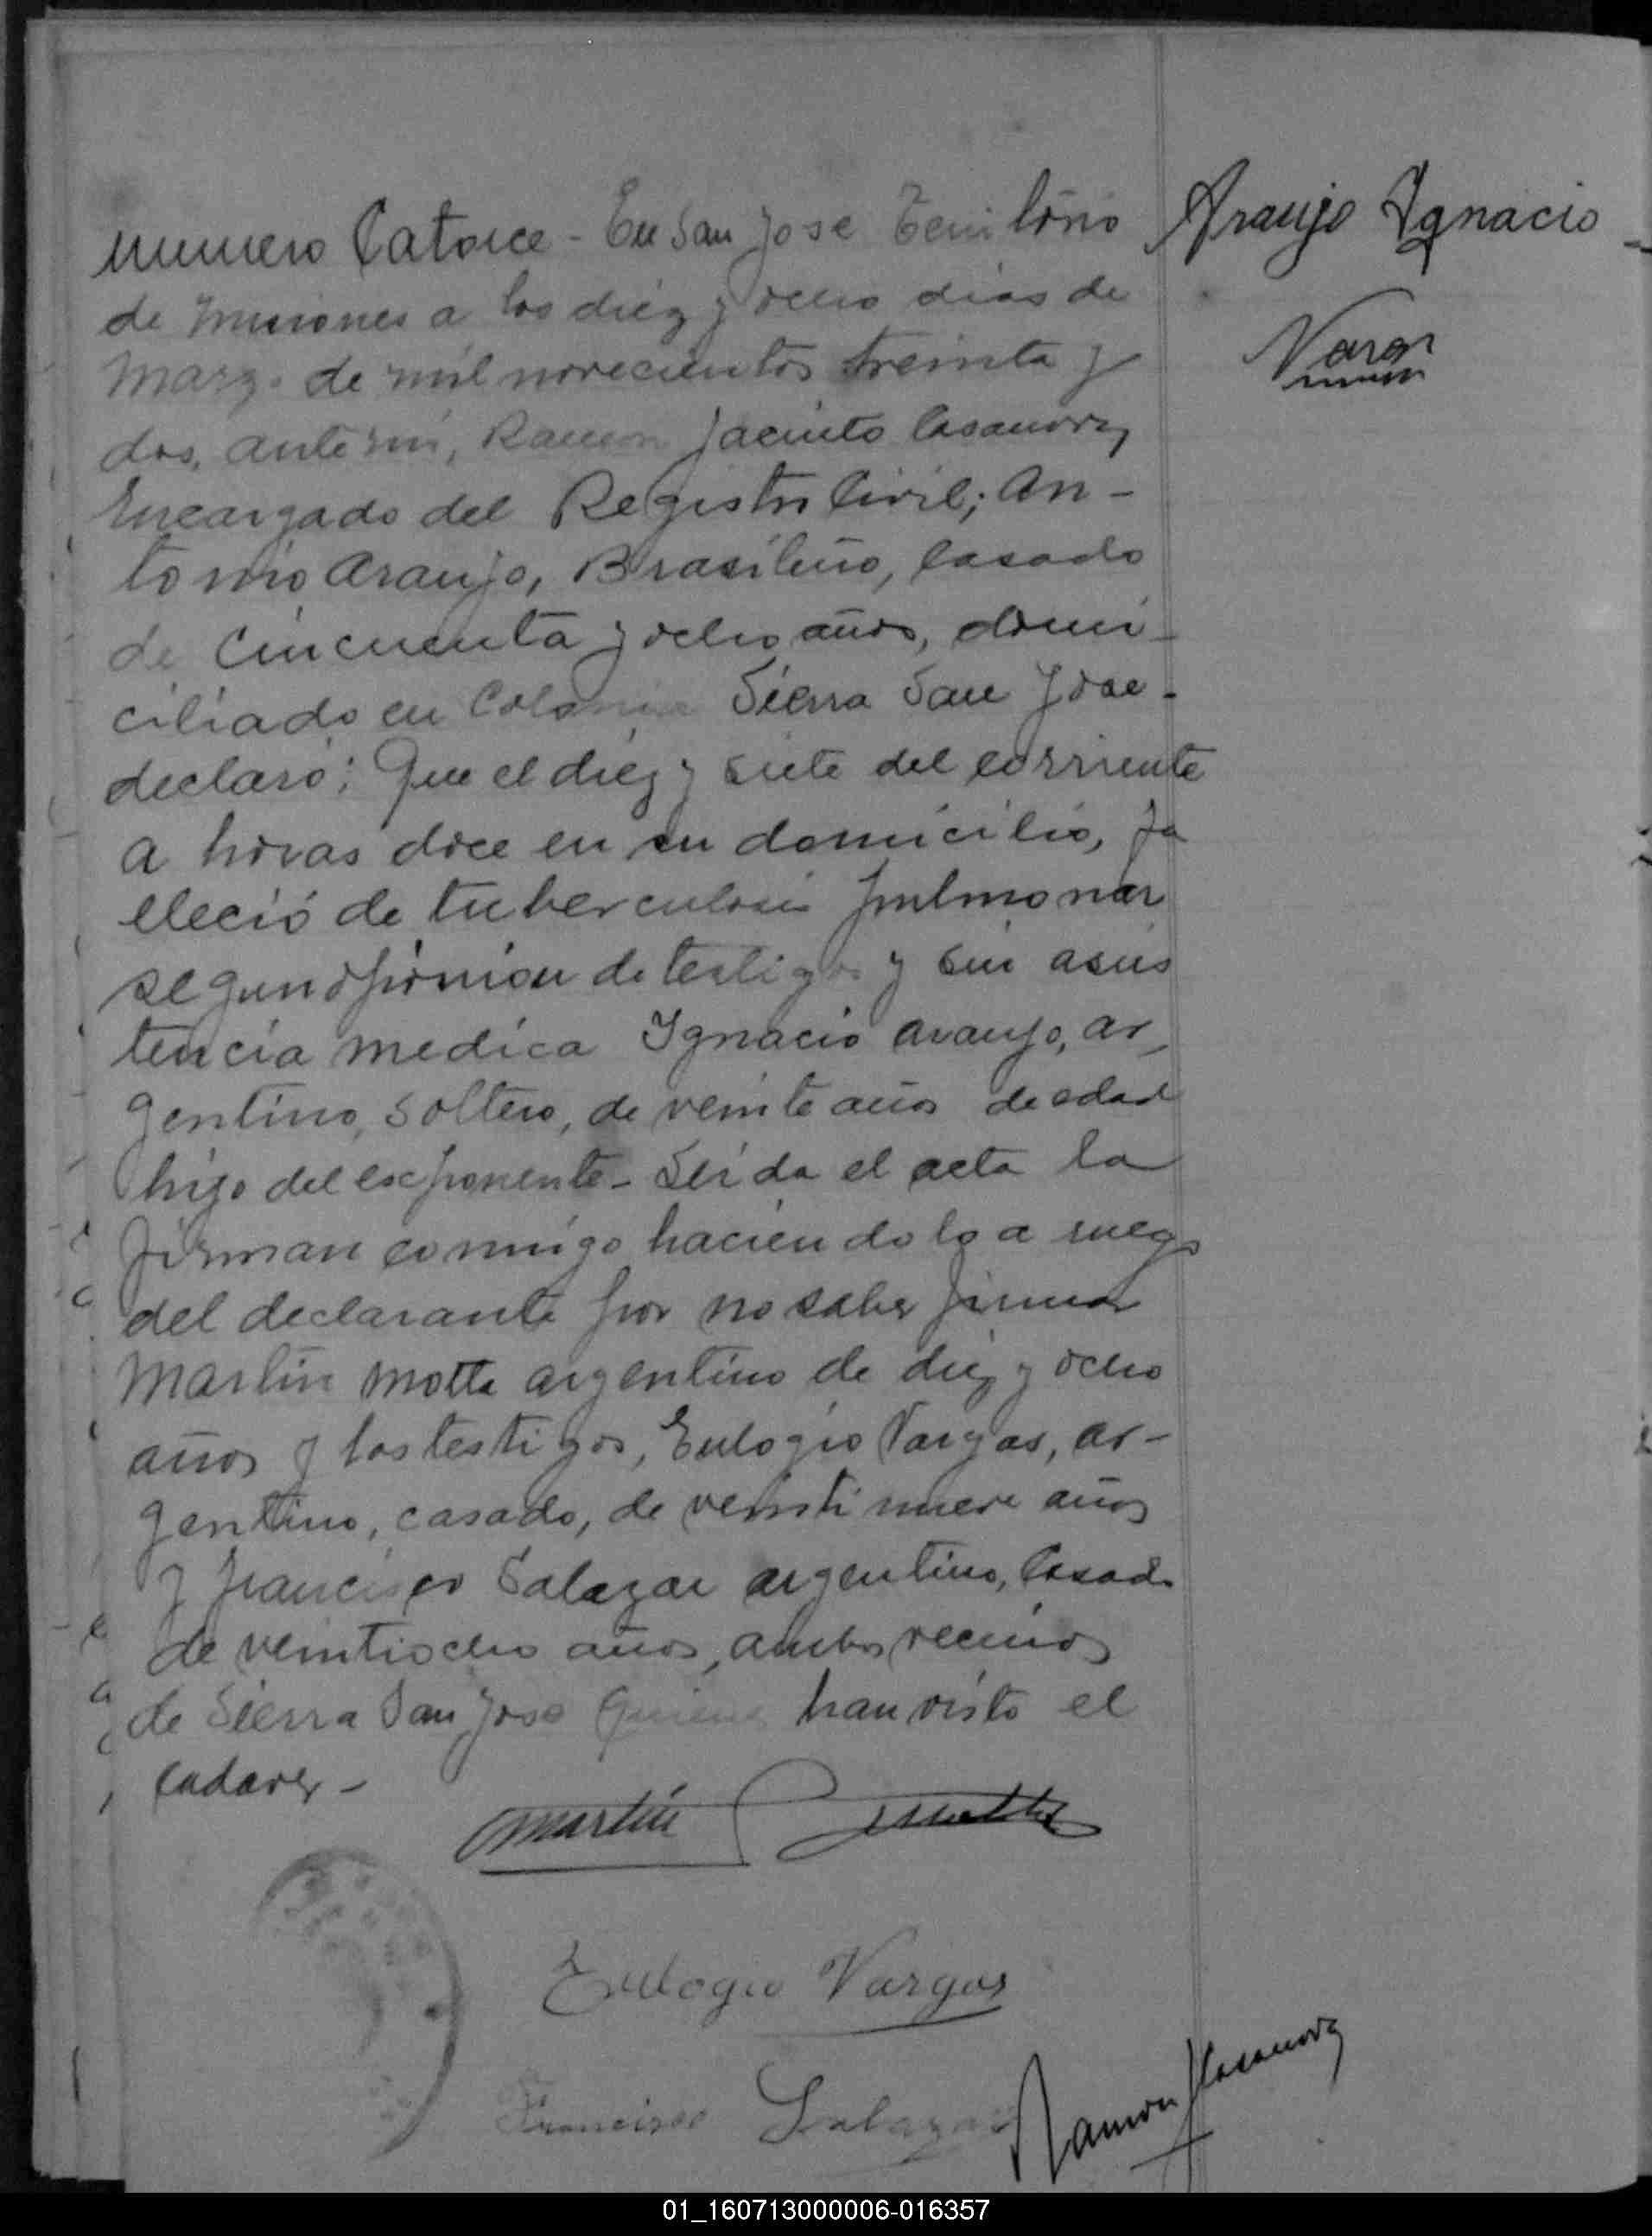 numero Catorce - En San Jose Territorio
de Misiones a los diéz y ocho dias de
Marzo de mil novecientos treinta y
dos, ante mi, Ramon Jacinto Casanova,
Encargado del Registro Civil; An-
tonio Araujo, Brasileño, Casado
de Cincuenta y ocho años, domi-
ciliado en Colonia Sierra San Jose -
declaró: Que el diéz y siete del corriente
a horas doce en su domicilio, fa
lleció de tuberculosis pulmonar
segun opinion de testigos y sin asis
tencia medica Ignacio Araujo, ar,
gentino, soltero, de veinte años de edad
hijo del exponente - Leida el acta la
firman conmigo haciendolo a ruego
del declarante por no saber firmar
Martin Motta argentino de diez y ocho
años y los testigos, Eulogio Vargas, ar-
gentino, casado, de veintinueve años
y Francisco Salazar argentino, Casado
de veintiocho años, ambos vecinos
de Sierra San Jose Quienes han visto el
Cadaver -
Araujo Ignacio
Varon
Martin Motta
Eulogio Vargas
Francisco Salazar
Ramon J Casanova
01_160713000006-016357